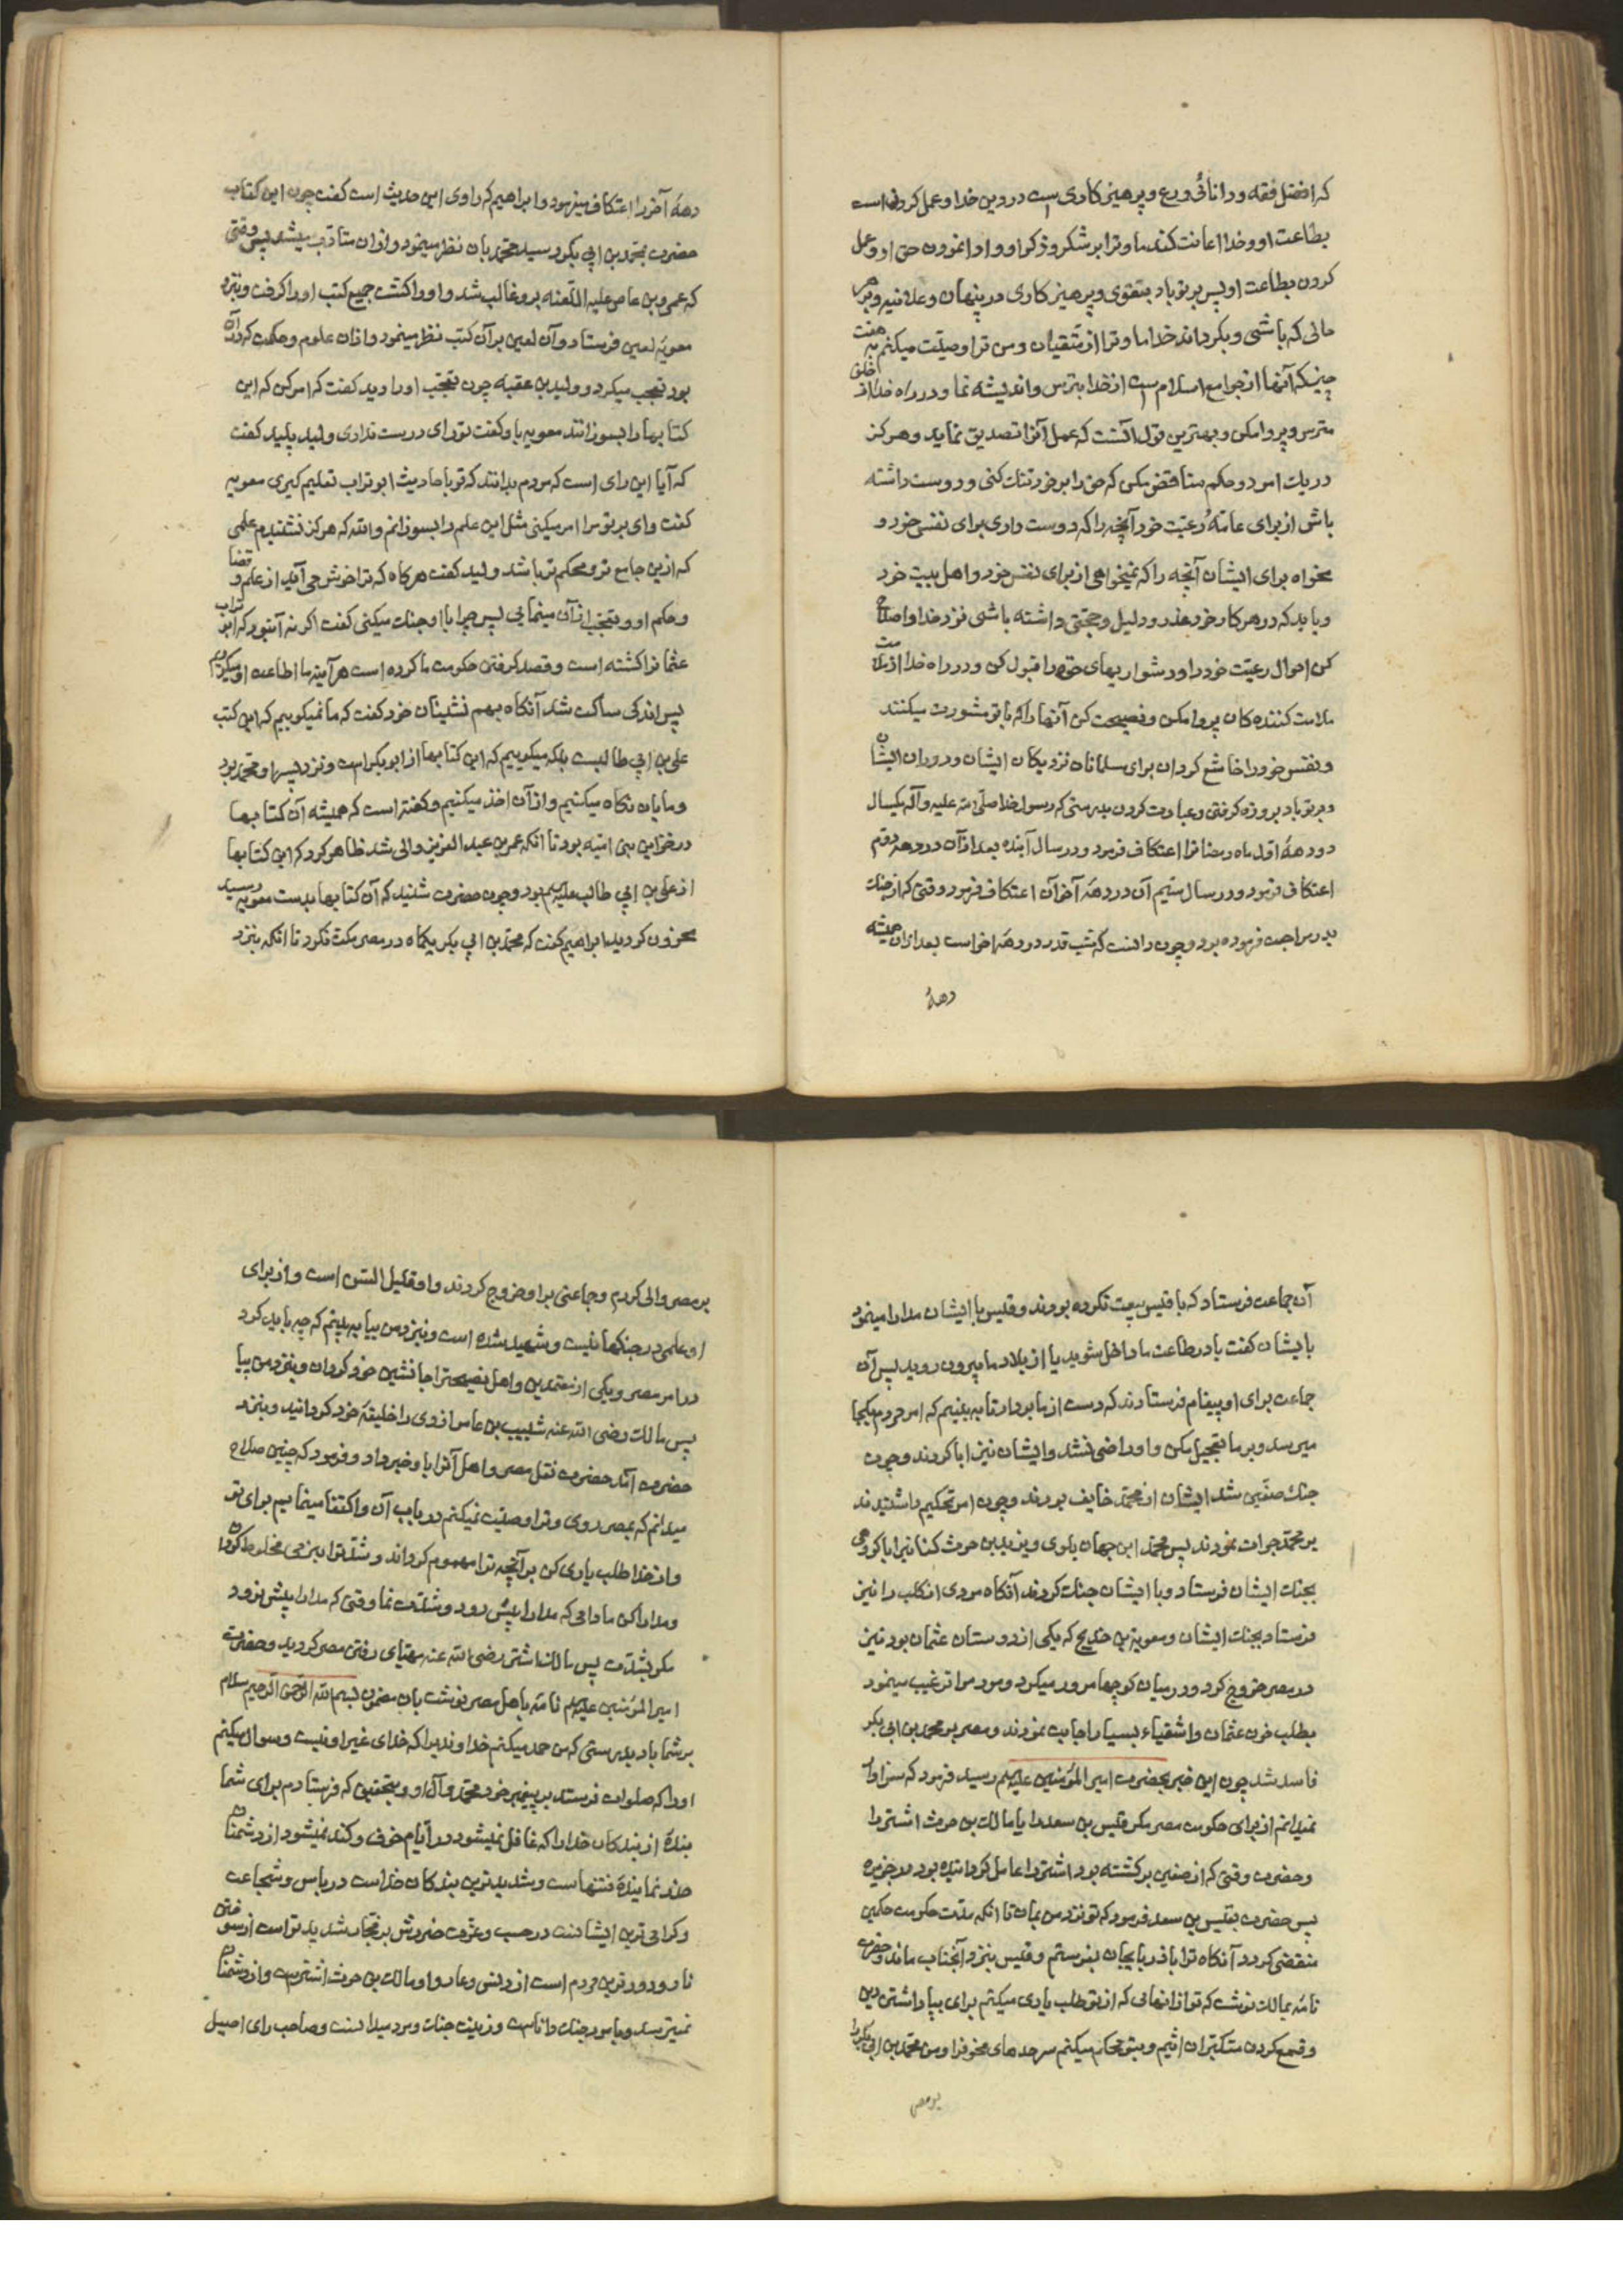 که افضل فقه و دانائی ورع و پرهیزکاری است در دین خدا و عمل کردن است
بطاعت او و خدا اعانت کند ما و ترا بر شکر و ذکر او و ادا نمودن حق او و عمل
کردن بطاعت او پس بر تو باد بتقوی و پرهیزکاری در پنهان و علانیه و بر هر
حالی که باشی و بگرداند خدا ما و ترا از متقیان و من ترا وصیّت میکنم به هفت
چیز که آنها از جوامع اسلام است از خدا بترس و اندیشه نما و در راه خدا از خلق
مترس و پروا مکن و بهترین قول آنست که عمل آنرا تصدیق نماید و هرگز
در یک امر دو حکم متناقض مکن که حق را بر خود تنک کنی و دوست داشته
باش از برای عامّهٔ رعیّت خود آنچه را که دوست داری برای نفس خود و
مخواه برای ایشان آنچه را که نمیخواهی از برای نفس خود و اهل بیت خود
و باید که در هر کار خود عذر و دلیل و حجتی داشته باشی نزد خدا و اصلاح
کن احوال رعیّت خود را و دشواریهای حق را قبول کن و در راه خدا از ملامت
ملامت کننده کان پروا مکن و نصیحت کن آنها را که با تو مشورت میکنند
و نفس خود را خاشع گردان برای مسلمانان نزدیکان ایشان و دوران ایشان
و بر تو باد بروزه گرفتن و عبادت کردن بدرستی که رسول خدا صلّی الله علیه و آله یکسال
در دههٔ اول ماه رمضانرا اعتکاف فرمود و در سال آینده بعد از آن در دههٔ دوّم
اعتکاف فرمود و در سال سیّم آن در دههٔ آخر آن اعتکاف فرمود وقتی که از جنک
بدر مراجعت فرموده بود و چون دانست که شب قدر در دههٔ اخر است بعد از آن همیشه
دههٔ
دههٔ آخر را اعتکاف میفرمود و ابراهیم که راوی این حدیث است گفت چون این کتاب
حضرت بمحمّد بن ابی بکر رسید محمّد بان نظر مینمود و از ان متادّب میشد پس وقتی
که عمرو بن عاص علیه اللّعنه برو غالب شد و او را کشت جمیع کتب او را گرفت و بنزد
معویهٔ لعین فرستاد و آن لعین بر آن کتب نظر مینمود و از ان علوم و حکمت که در آن
بود تعجب میکرد و ولید بن عقبه چون تعجّب او را دید گفت که امر کن که این
کتابها را بسوزانند معویه باو گفت تو رای درست نداری ولید پلید گفت
که آیا این رای است که مردم بدانند که تو باحادیث ابو تراب تعلیم گیری معویه
گفت وای بر تو مرا امر میکنی مثل این علم را بسوزانم والله که هرگز نشنیدم علمی
که ازین جامع تر و محکم تر باشد ولید گفت هر گاه که ترا خوش می آید از علم و قضا
و حکم او و تعجّب از آن مینمایی پس چرا با او جنک میکنی گفت اگر نه آن بود که ابو تراب
عثمانرا کشته است و قصد گرفتن حکومت ما کرده است هر آینه ما اطاعت او میکردیم
پس اندکی ساکت شد آنگاه بهم نشینان خود گفت که ما نمیگوییم که این کتب
علی بن ابی طالبست بلکه میگوییم که این کتابها از ابو بکر است و نزد پسر او محمّد بود
و ما بان نگاه میکنیم و از آن اخذ میکنیم و گفته است که همیشه آن کتابها
در خزاین بنی امیّه بود تا آنکه عمر بن عبد العزیز والی شد ظاهر کرد که این کتابها
از علی بن ابی طالب علیهم بود و چون حضرت شنید که آن کتابها بدست معویه رسید
محزون گردید ابراهیم گفت که محمّد بن ابی بکر یکماه در مصر مکث نکرد تا آنکه بنزد
آن جماعت فرستاد که با قیس بیعت نکرده بودند و قیس با ایشان مدارا مینمود
بایشان گفت یا در طاعت ما داخل شوید یا از بلاد ما بیرون روید پس آن
جماعت برای او پیغام فرستادند که دست از ما بردار تا به بینیم که امر مردم بکجا
میرسد و بر ما تعجیل مکن و او راضی نشد و ایشان نیز ابا کردند و چون
جنک صفّین شد ایشان از محمّد خایف بودند و چون امر تحکیم را شنیدند
بر محمّد جرات نمودند پس محمّد ابن جهمان بلوی و یزید بن حرث کنانیرا با گروهی
بجنک ایشان فرستاد و با ایشان جنک کردند آنگاه مردی از کلب را نیز
فرستاد بجنک ایشان و معویة بن خدیج که یکی از دوستان عثمان بود نیز
در مصر خروج کرد و در میان کوچها مرور میکرد و مردم را ترغیب مینمود
بطلب خون عثمان و اشقیاء بسیار اجابت نمودند و مصر بر محمد بن ابی بکر
فاسد شد چون این خبر بحضرت امیر المؤمنین علیهم رسید فرمود که سزاوار
نمیدانم از برای حکومت مصر مگر قیس بن سعد را یا مالک بن حرث اشتر را
و حضرت وقتی که از صفین برگشته بود اشتر را عامل گردانیده بود در جزیره
پس حضرت بقیس بن سعد فرمود که تو نزد من بمان تا آنکه مدّت حکومت حکمین
منقضی گردد آنگاه ترا باذربایجان بفرستم و قیس بنزد آنجناب ماند و حضرت
نامه بمالک نوشت که تو از انهایی که از تو طلب یاری میکنم برای بپا داشتن دین
و قمع کردن متکبّران اثیم و بتو محکم میکنم سرحدهای مخوفرا و من محمّد بن ابی بکر را
بر مصر
بر مصر والی کردم و جماعتی بر او خروج کردند و او قلیل السّن است و از برای
او علمی در جنگها نیست و شهید شده است و نزد من بیا به بینم که چه باید کرد
در امر مصر و یکی از معتمدین و اهل نصیحترا جانشین خود گردان و بنزد من بیا
پس مالک رضی الله عنه شبیب بن عامر ازدی را خلیفهٔ خود گردانید و بنزد
حضرت آمد حضرت نقل مصر و اهل آنرا باو خبر داد و فرمود که چنین صلاح
میدانم که بمصر روی و ترا وصیّت نمیکنم در باب آن و اکتفا مینمایم برای تو
و از خدا طلب یاری کن بر آنچه ترا مهموم گرداند و شدّترا بنرمی مخلوط گردان
و مدارا کن مادامی که مدارا پیش رود و شدّت نما وقتی که مدارا پیش نرود
مگر بشدّت پس مالک اشتر رضی الله عنه مهیّای رفتن مصر گردید و حضرت
امیر المؤمنین علیهم نامه باهل مصر نوشت باین مضمون بسم الله الرّحمن الرّحیم سلام
بر شما باد بدرستی که من حمد میکنم خداوندیرا که خدای غیر او نیست و سوال میکنم
او را که صلوات فرستد بر پیغمبر خود محمّد و آل او و بتحقیق که فرستادم برای شما
بندهٔ از بندکان خدا را که غافل نمیشود در آیّام خوف و کند نمیشود از دشمنان
حذر نمایندهٔ فتنهاست و شدیدترین بندکان خداست در باس و شجاعت
و گرامی ترین ایشانست در حسب و عزّت ضررش بر فجّار شدید تر است از سوختن
نار و دور ترین مردم است از دنس و عار و او مالک بن حرث اشتر است و از دشمنان
نمیترسد و بامور جنک داناست و زینت جنک و مرد میدانست و صاحب رای اصیل